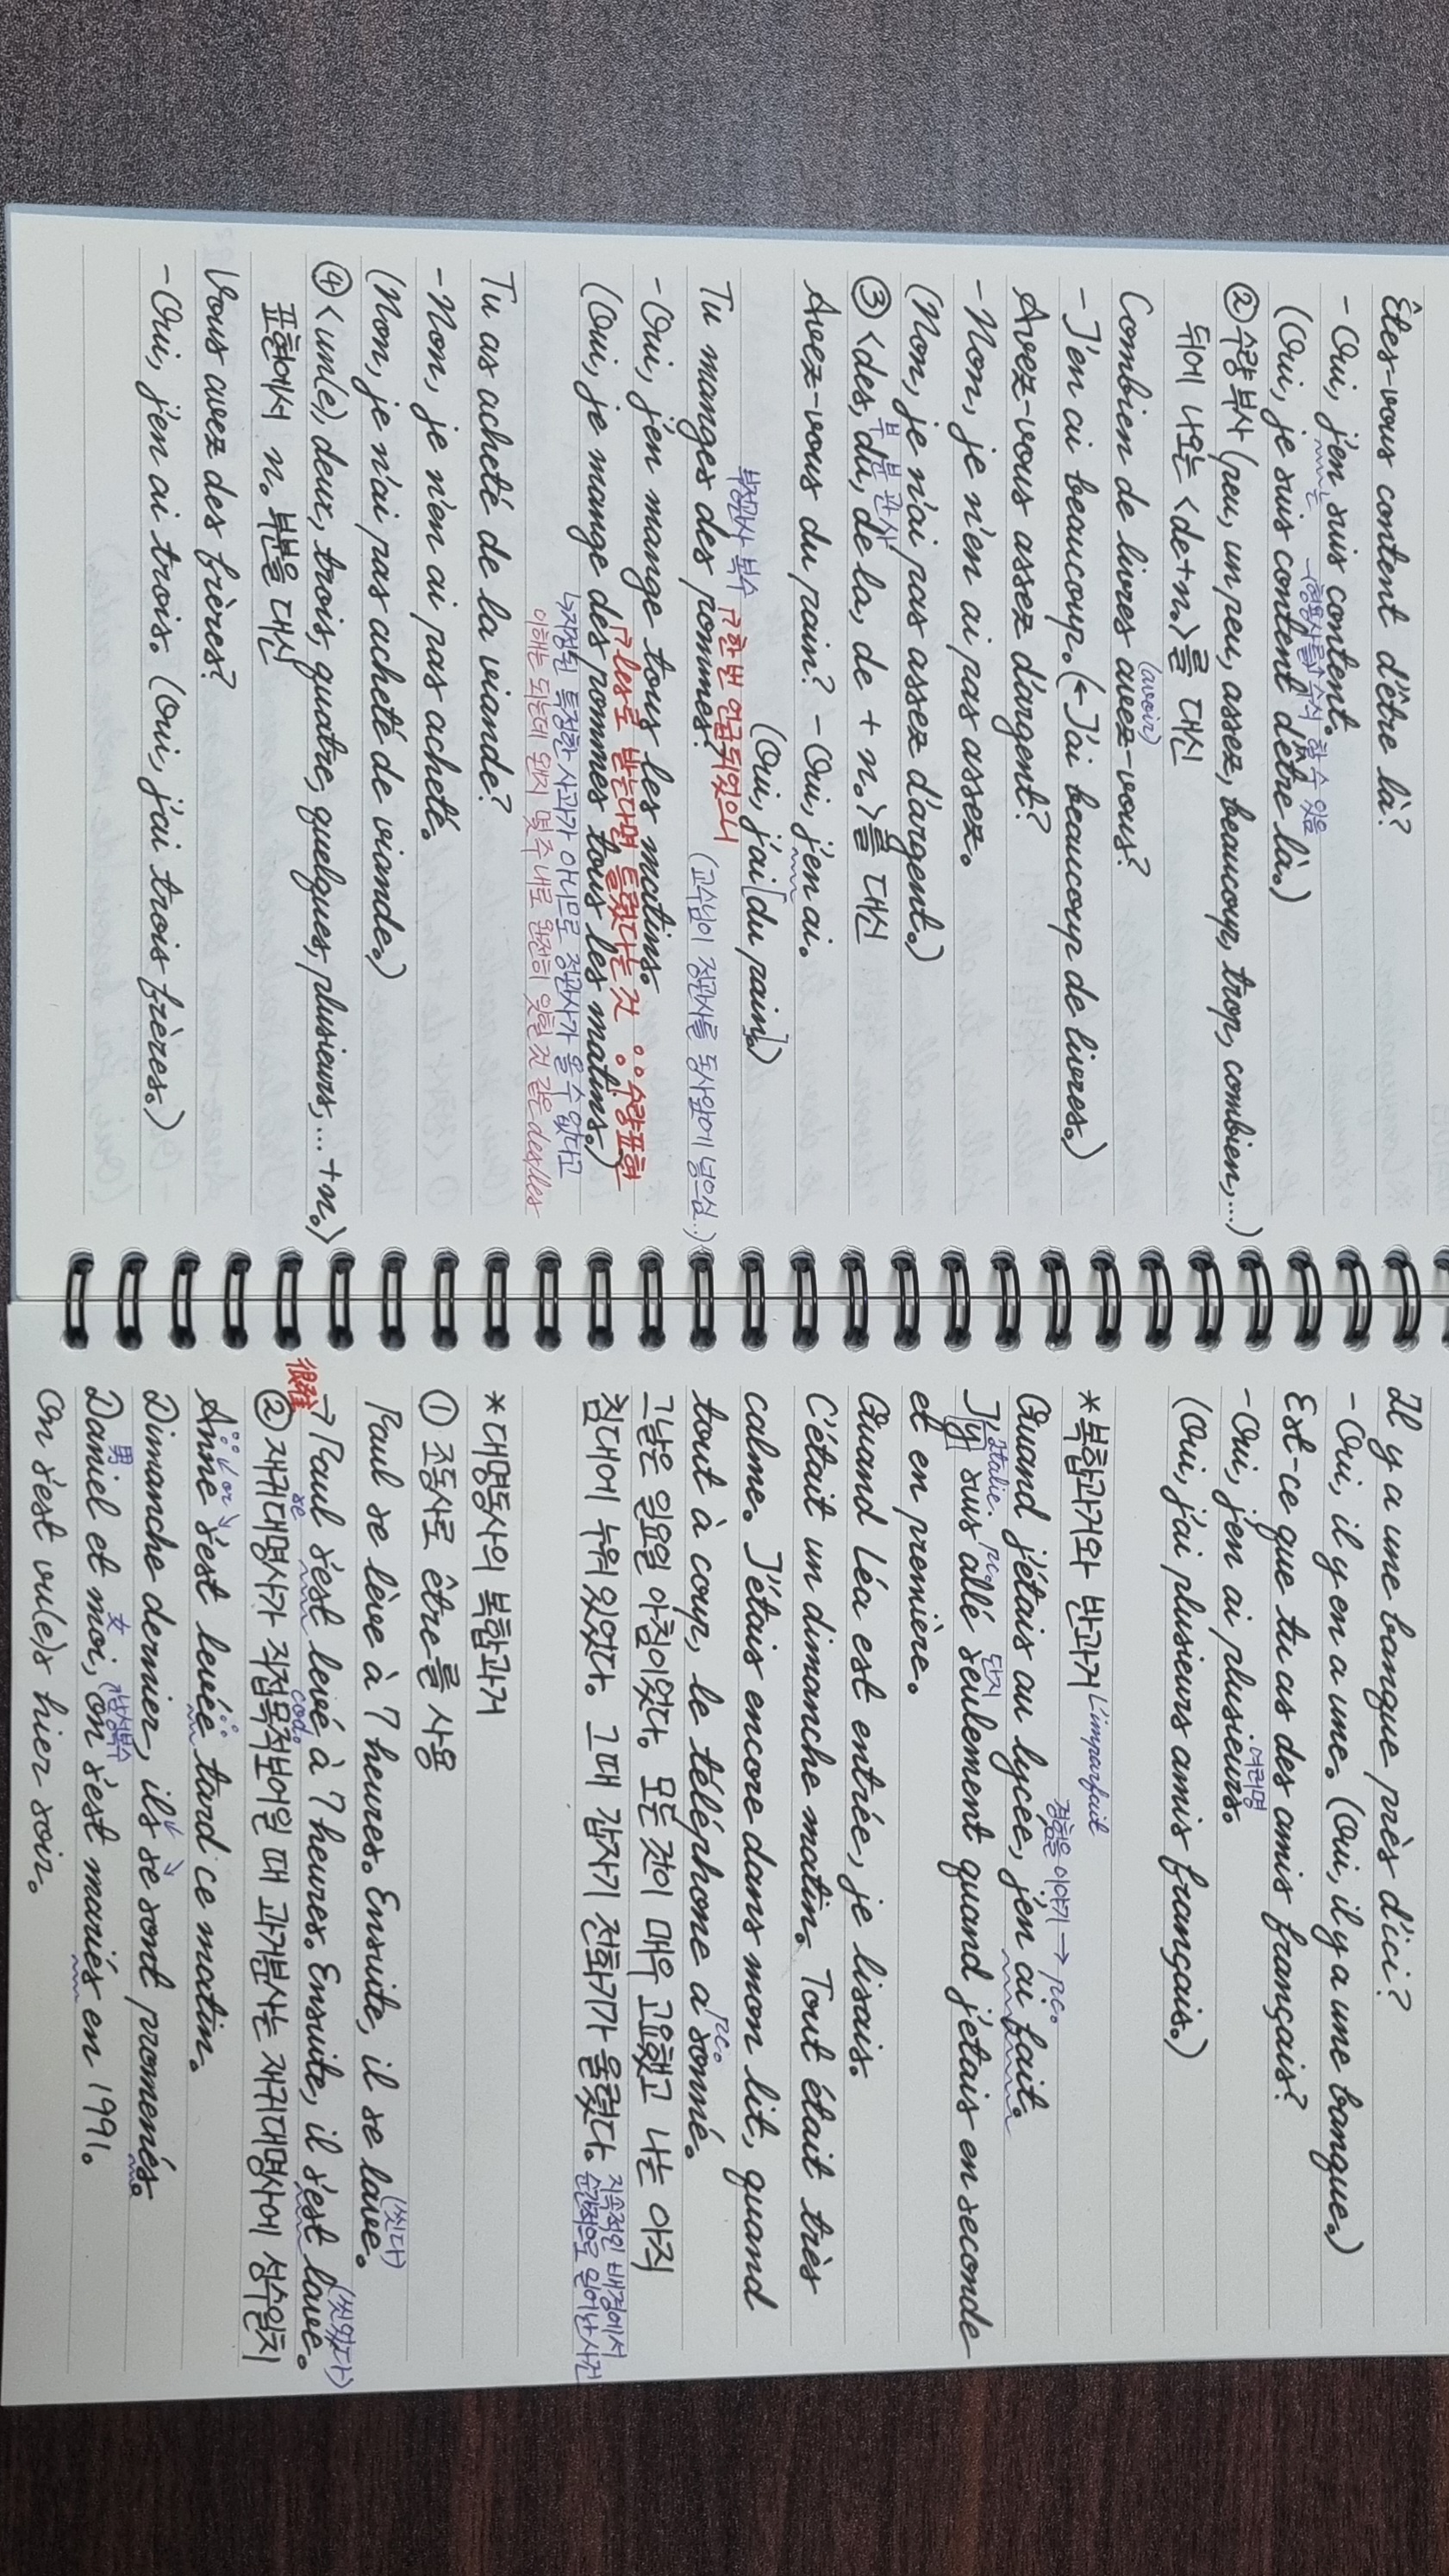 Êtes-vous content d'être là?
- Oui, j'en suis content.
는 →형용사를 수식 할 수 있음
(Oui, je suis content d'être là.)
② 수량 부사 (peu, un peu, assez, beaucoup, trop, combien, ...)
뒤에 나오는 <de+n.>를 대신
(avoir)
Combien de livres avez-vous?
- J'en ai beaucoup. (← J'ai beaucoup de livres.)
Avez-vous assez d'argent?
- Non, je n'en ai pas assez.
(Non, je n'ai pas assez d'argent.)
부 분 관사
③ <des, du, de la, de + n.>를 대신
Avez-vous du pain? - Oui, j'en ai.
(Oui, j'ai [du pain].)
부정관사 복수 한 번 언급되었으니 (교수님이 정관사를 동사앞에 넣으심..)
Tu manges des pommes?
- Oui, j'en mange tous les matins.
les로 받는다면 틀렸다는 것 ∵수량표현
(Oui, je mange des pommes tous les matins.)
↳지정된 특정한 사과가 아니므로 정관사가 올 수 없다고
이해는 되는데 왠지 몇 주 내로 완전히 잊힐 것 같은 des/les
Tu as acheté de la viande?
- Non, je n'en ai pas acheté.
(Non, je n'ai pas acheté de viande.)
④ <un(e), deux, trois, quatre, quelques, plusieurs, ... +n.>
표현에서 n. 부분을 대신
Vous avez des frères?
- Oui, j'en ai trois. (Oui, j'ai trois frères.)
Il y a une banque près d'ici?
- Oui, il y en a une. (Oui, il y a une banque.)
Est-ce que tu as des amis français?
- Oui, j'en ai plusieurs.
여러명
(Oui, j'ai plusieurs amis français.)
*복합과거와 반과거 L'imparfait
경험을 이야기 → p.c.
Quand j'étais au lycée, j'en ai fait.
Italie. p.c. 단지
J'y suis allé seulement quand j'étais en seconde
et en première.
Quand Léa est entrée, je lisais.
C'était un dimanche matin. Tout était très
calme. J'étais encore dans mon lit, quand
p.c.
tout à coup, le téléphone a sonné.
그날은 일요일 아침이었다. 모든 것이 매우 고요했고 나는 아직
침대에 누워 있었다. 그때 갑자기 전화기가 울렸다.
지속적인 배경에서
순간적으로 일어난 사건
*대명동사의 복합과거
① 조동사로 être를 사용
(씻다)
Paul se lève à 7 heures. Ensuite, il se lave.
(씻었다)
→ Paul s'est levé à 7 heures. Ensuite, il s'est lavé.
很难 se cod.
② 재귀대명사가 직접목적보어일 때 과거분사는 재귀대명사에 성수일치
or
Anne s'est levée tard ce matin.
Dimanche dernier, ils se sont promenés.
男 女 남성복수
Daniel et moi, on s'est mariés en 1991.
On s'est vu(e)s hier soir.